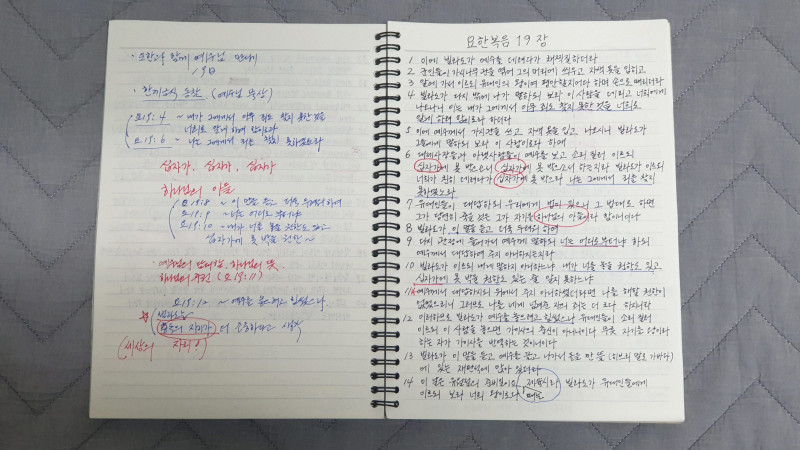 · 요한과 함께 예수님 만나기
19일
· 한가지씩 관찰 (예수님 묵상)
요19:4 ~ 내가 그에게서 아무 죄도 찾지 못한 것을
너희로 알게 하려 함이라
요19:6 ~ 나는 그에게서 죄를 찾지 못하였노라
십자가, 십자가, 십자가
하나님의 아들
요19:8 ~ 이 말을 듣고 더욱 두려워하여
요19:9 ~ 너는 어디로부터냐
요19:10 ~ 내가 너를 놓을 권한도 있고
십자가에 못 박을 권한 ~
· 예수님의 하나님의 뜻,
하나님의 주권 (요19:11)
요19:12 ~ 예수를 놓으려고 힘썼으나
빌라도는
의 자리가 더 중요하다고
(세상의 자리)
요한복음 19장
1 이에 빌라도가 예수를 데려다가 채찍질하더라
2 군인들이 가시나무로 관을 엮어 그의 머리에 씌우고 자색 옷을 입히고
3 앞에 가서 이르되 유대인의 왕이여 평안할지어다 하며 손으로 때리더라
4 빌라도가 다시 밖에 나가 말하되 보라 이 사람을 데리고 너희에게
나오나니 이는 내가 그에게서 아무 죄도 찾지 못한 것을 너희로
알게 하려 함이로라 하더라
5 이에 예수께서 가시관을 쓰고 자색 옷을 입고 나오시니 빌라도가
그들에게 말하되 보라 이 사람이로다 하매
6 대제사장들과 아랫사람들이 예수를 보고 소리 질러 이르되
십자가에 못 박으소서 십자가에 못 박으소서 하는지라 빌라도가 이르되
너희가 친히 데려다가 십자가에 못 박으라 나는 그에게서 죄를 찾지
못하였노라
7 유대인들이 대답하되 우리에게 법이 있으니 그 법대로 하면
그가 당연히 죽을 것은 그가 자기를 하나님의 아들이라 함이니이다
8 빌라도가 이 말을 듣고 더욱 두려워하여
9 다시 관정에 들어가서 예수께 말하되 너는 어디로부터냐 하되
예수께서 대답하여 주지 아니하시는지라
10 빌라도가 이르되 내게 말하지 아니하느냐 내가 너를 놓을 권한도 있고
십자가에 못 박을 권한도 있는 줄 알지 못하느냐
11 예수께서 대답하시되 위에서 주지 아니하셨더라면 나를 해할 권한이
없었으리니 그러므로 나를 네게 넘겨준 자의 죄는 더 크다 하시니라
12 이러하므로 빌라도가 예수를 놓으려고 힘썼으나 유대인들이 소리 질러
이르되 이 사람을 놓으면 가이사의 충신이 아니니이다 무릇 자기를 왕이라
하는 자는 가이사를 반역하는 것이니이다
13 빌라도가 이 말을 듣고 예수를 끌고 나가서 돌을 깐 뜰 (히브리 말로 가바다)
에 있는 재판석에 앉아 있더라
14 이 날은 유월절의 준비일이요 제육시라 빌라도가 유대인들에게
이르되 보라 너희 왕이로다